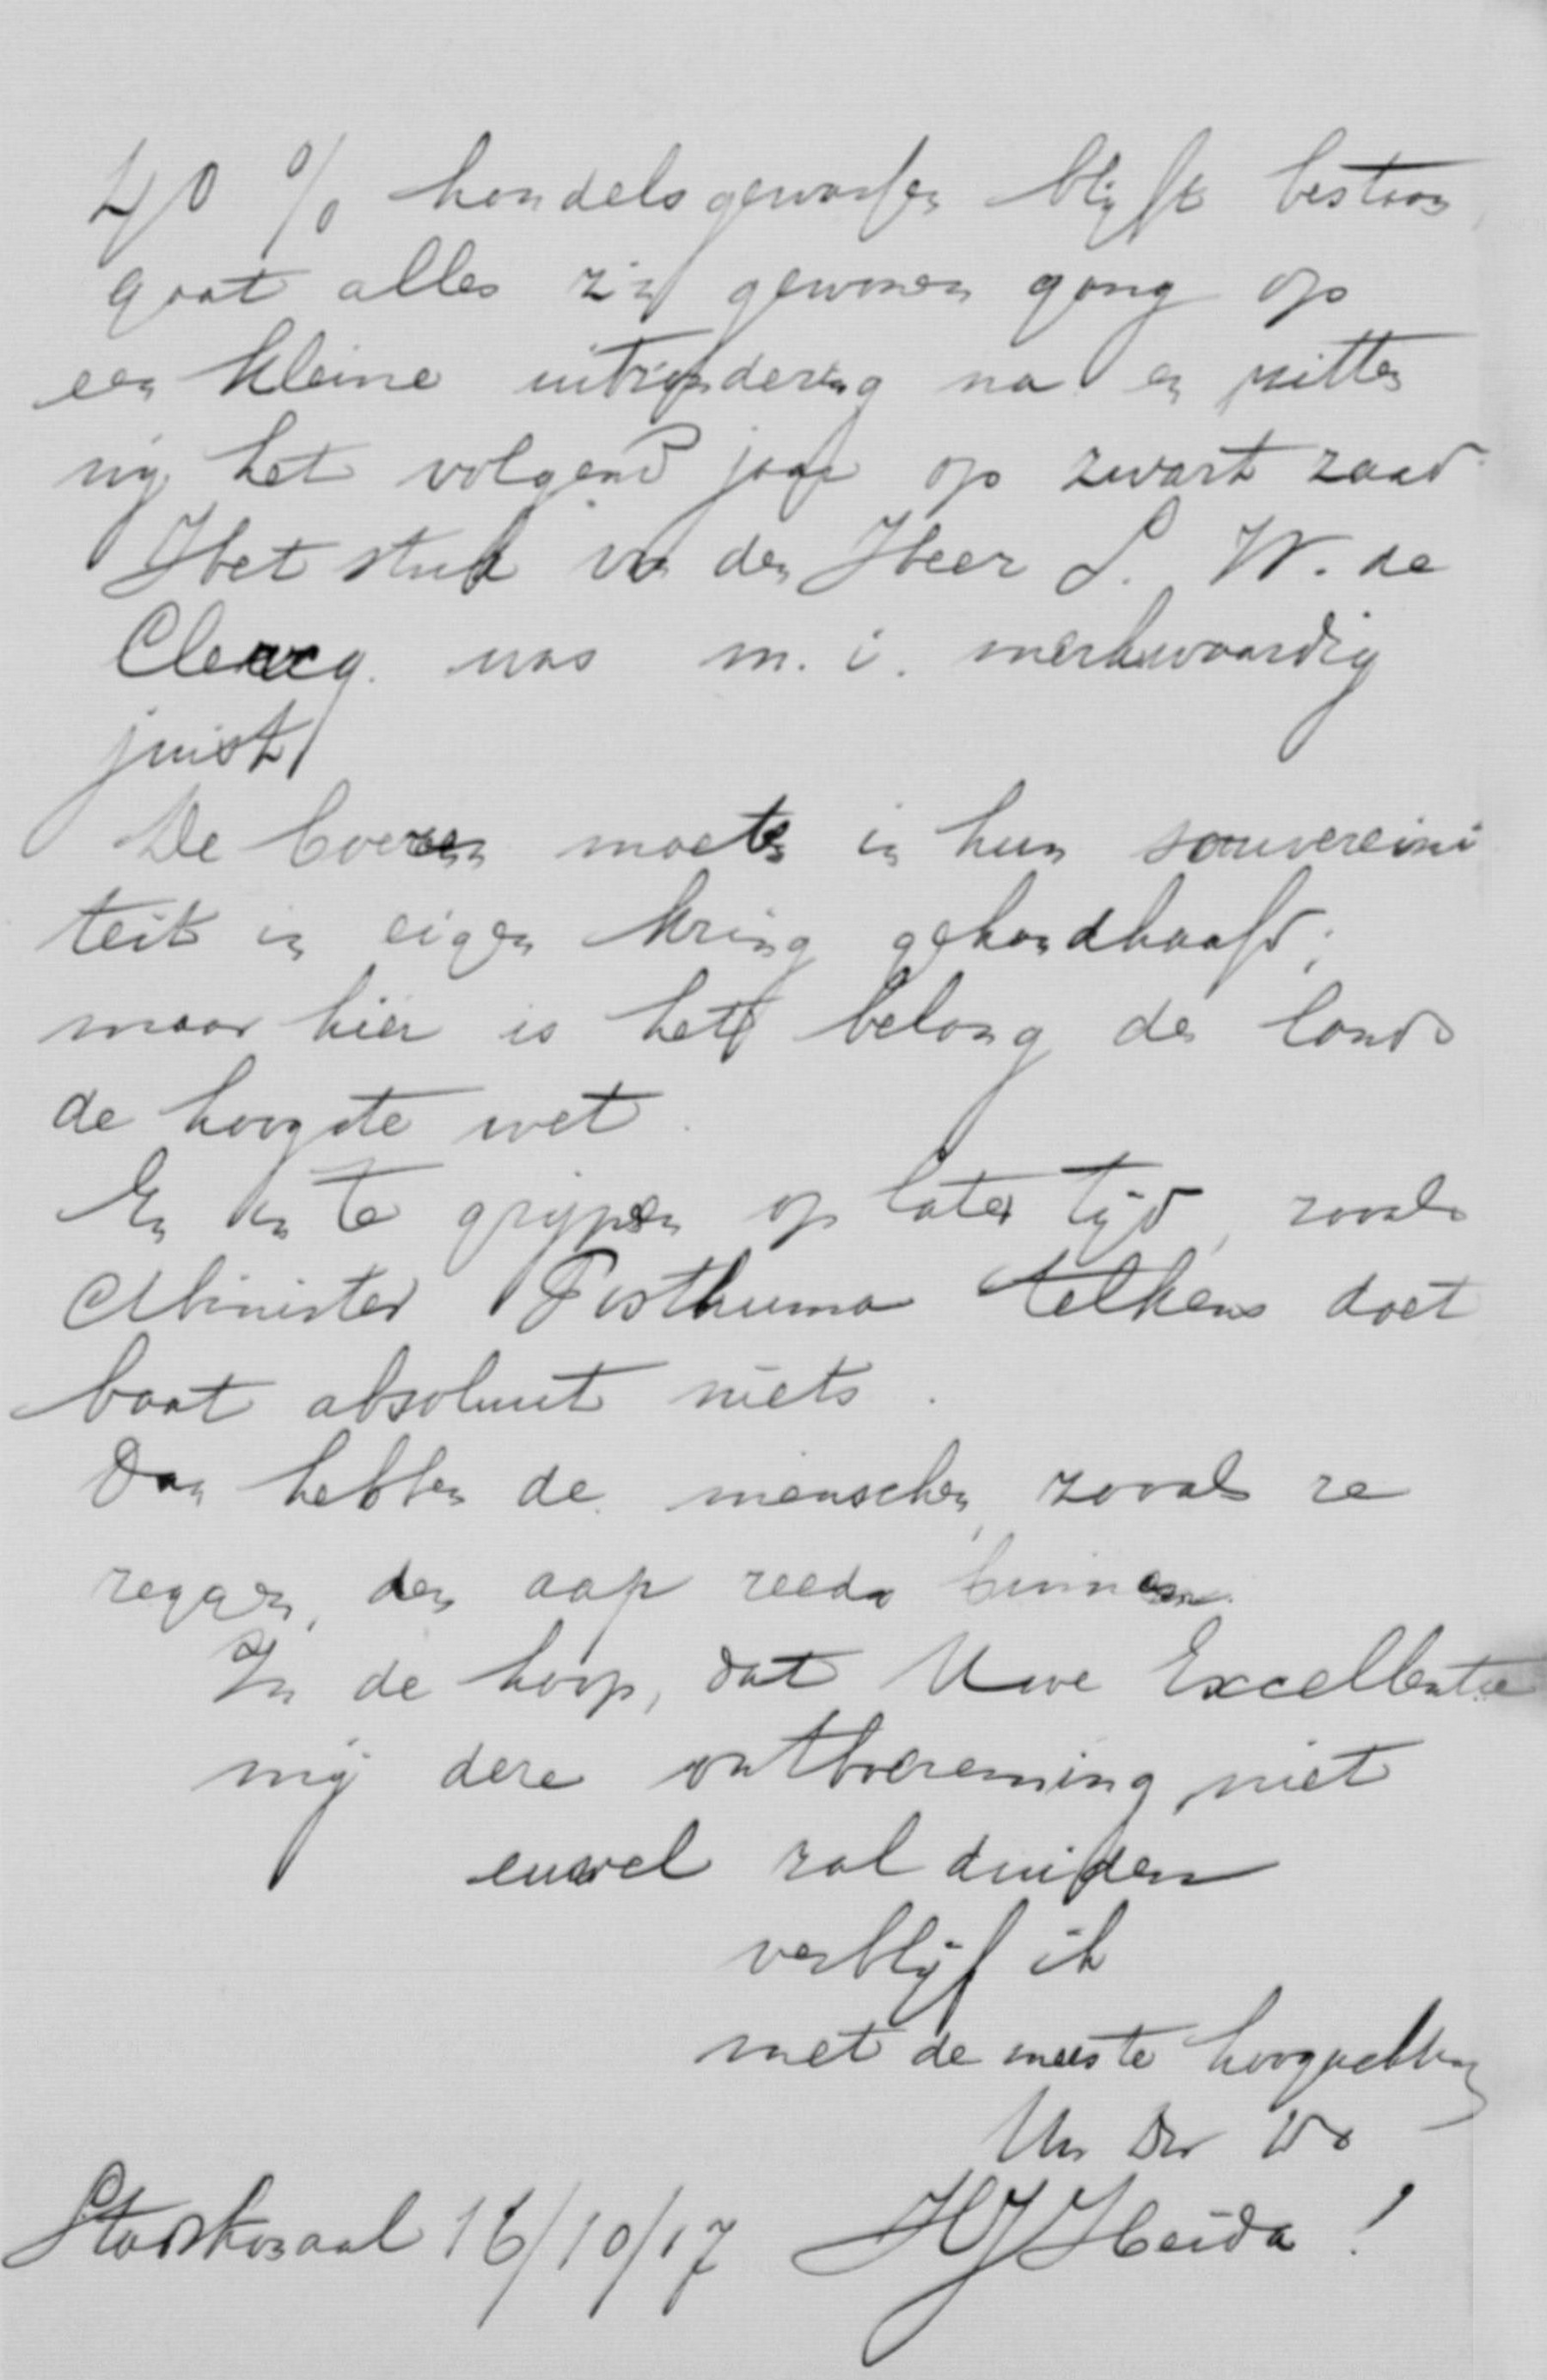 40 % handelsgewassen blijft bestaan,
gaat alles zijn gewonen gang op
een kleine uitzondering na en zitten
wij het volgend jaar op zwart zaad.
Het stuk van den Heer S. W. de
Clercq. was m. i. merkwaardig
juist
De boeren moeten in hun souvereini
teit in eigen kring gehandhaafd;
maar hier is het belang des lands
de hoogste wet.
En in te grijpen op later tijd, zooals
Minister Posthuma telkens doet
baat absoluut niets.
Dan hebben de menschen, zooals ze
zeggen, den aap reeds binnen.
In de hoop, dat Uwe Excellentie
mij deze ontboezeming niet
euvel zal duiden
verblijf ik
met de meeste hoogachting
Uw Dw
Stadskanaal 16/10/17 HJ Heida !